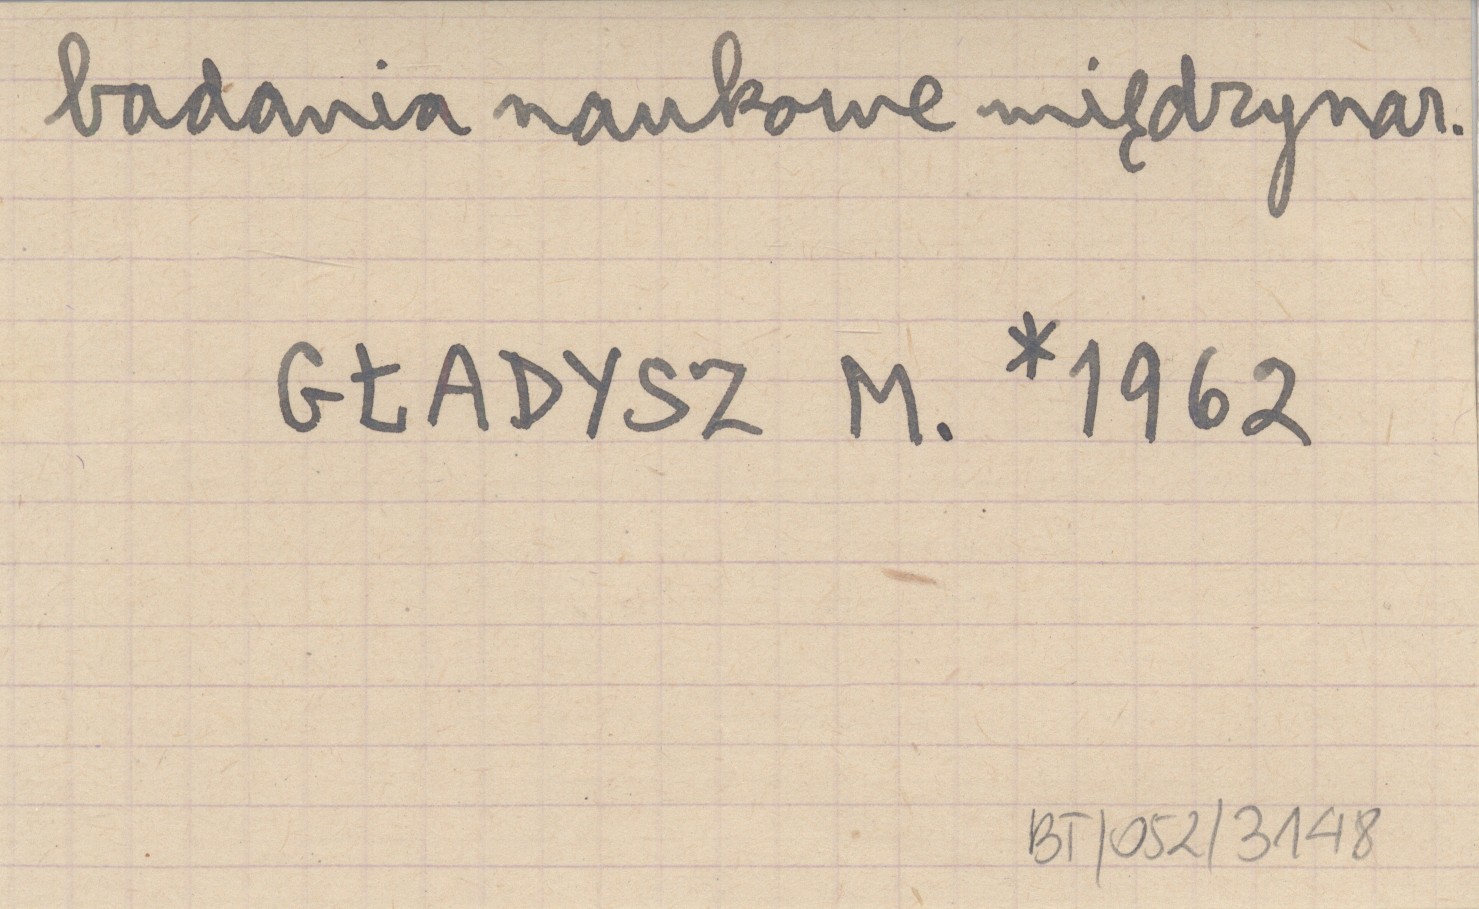 badania naukowe międzynar.
GŁADYSZ M. *1962
BT/052/3148